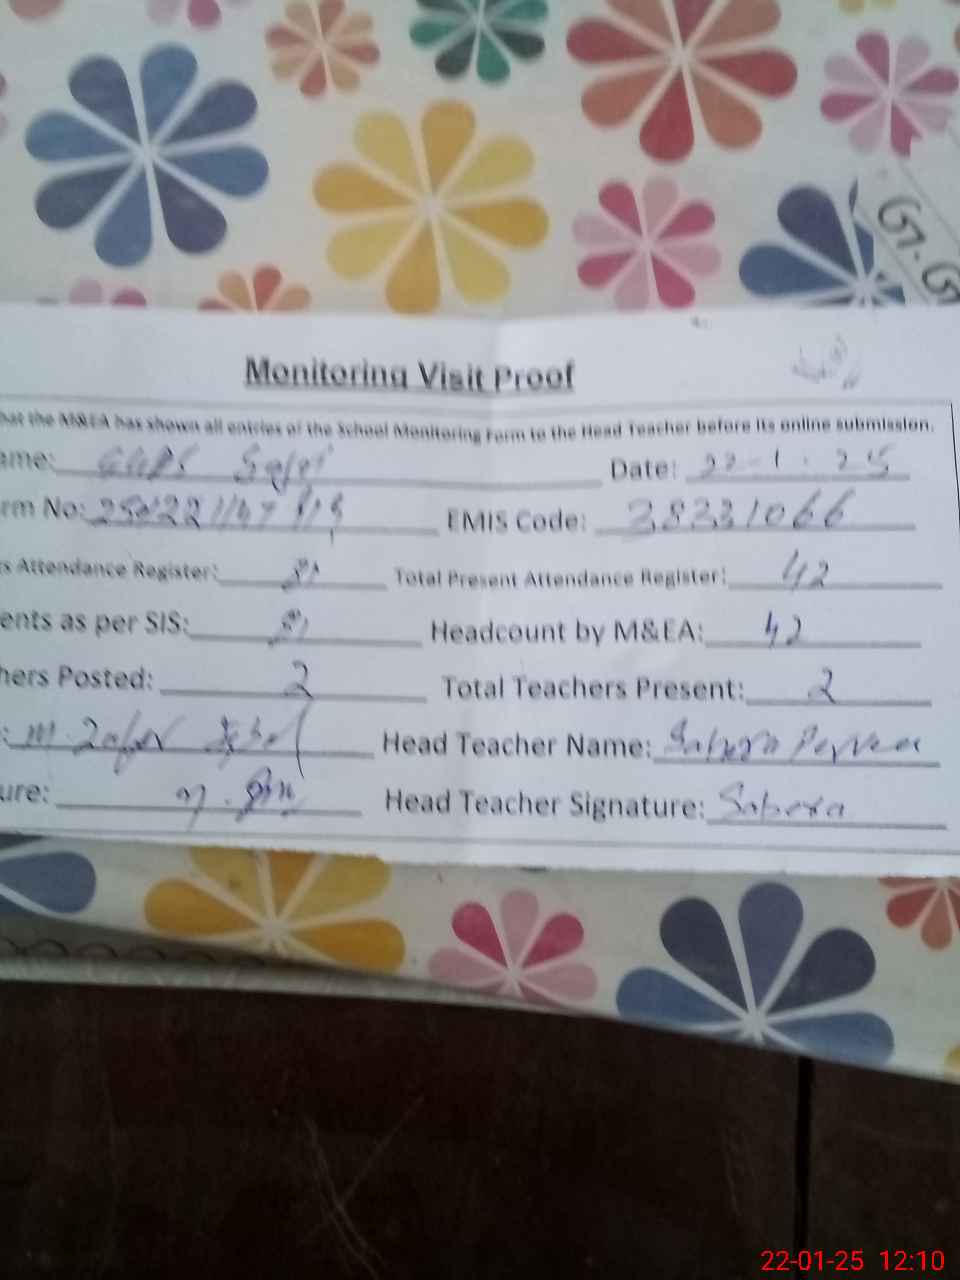 G.G
Monitoring Visit Proof
hat the M&EA has shown all entries of the School Monitoring Form to the Head Teacher before its online submission.
ame: Date: 22-1-25
rm No: EMIS Code: 38331066
s Attendance Register: 81 Total Present Attendance Register: 42
ents as per SIS: 81 Headcount by M&EA: 42
hers Posted: 2 Total Teachers Present: 2
: M. Zafar Iqbal Head Teacher Name: Sabera Perveen
ure: Head Teacher Signature: Sabera
22-01-25 12:10